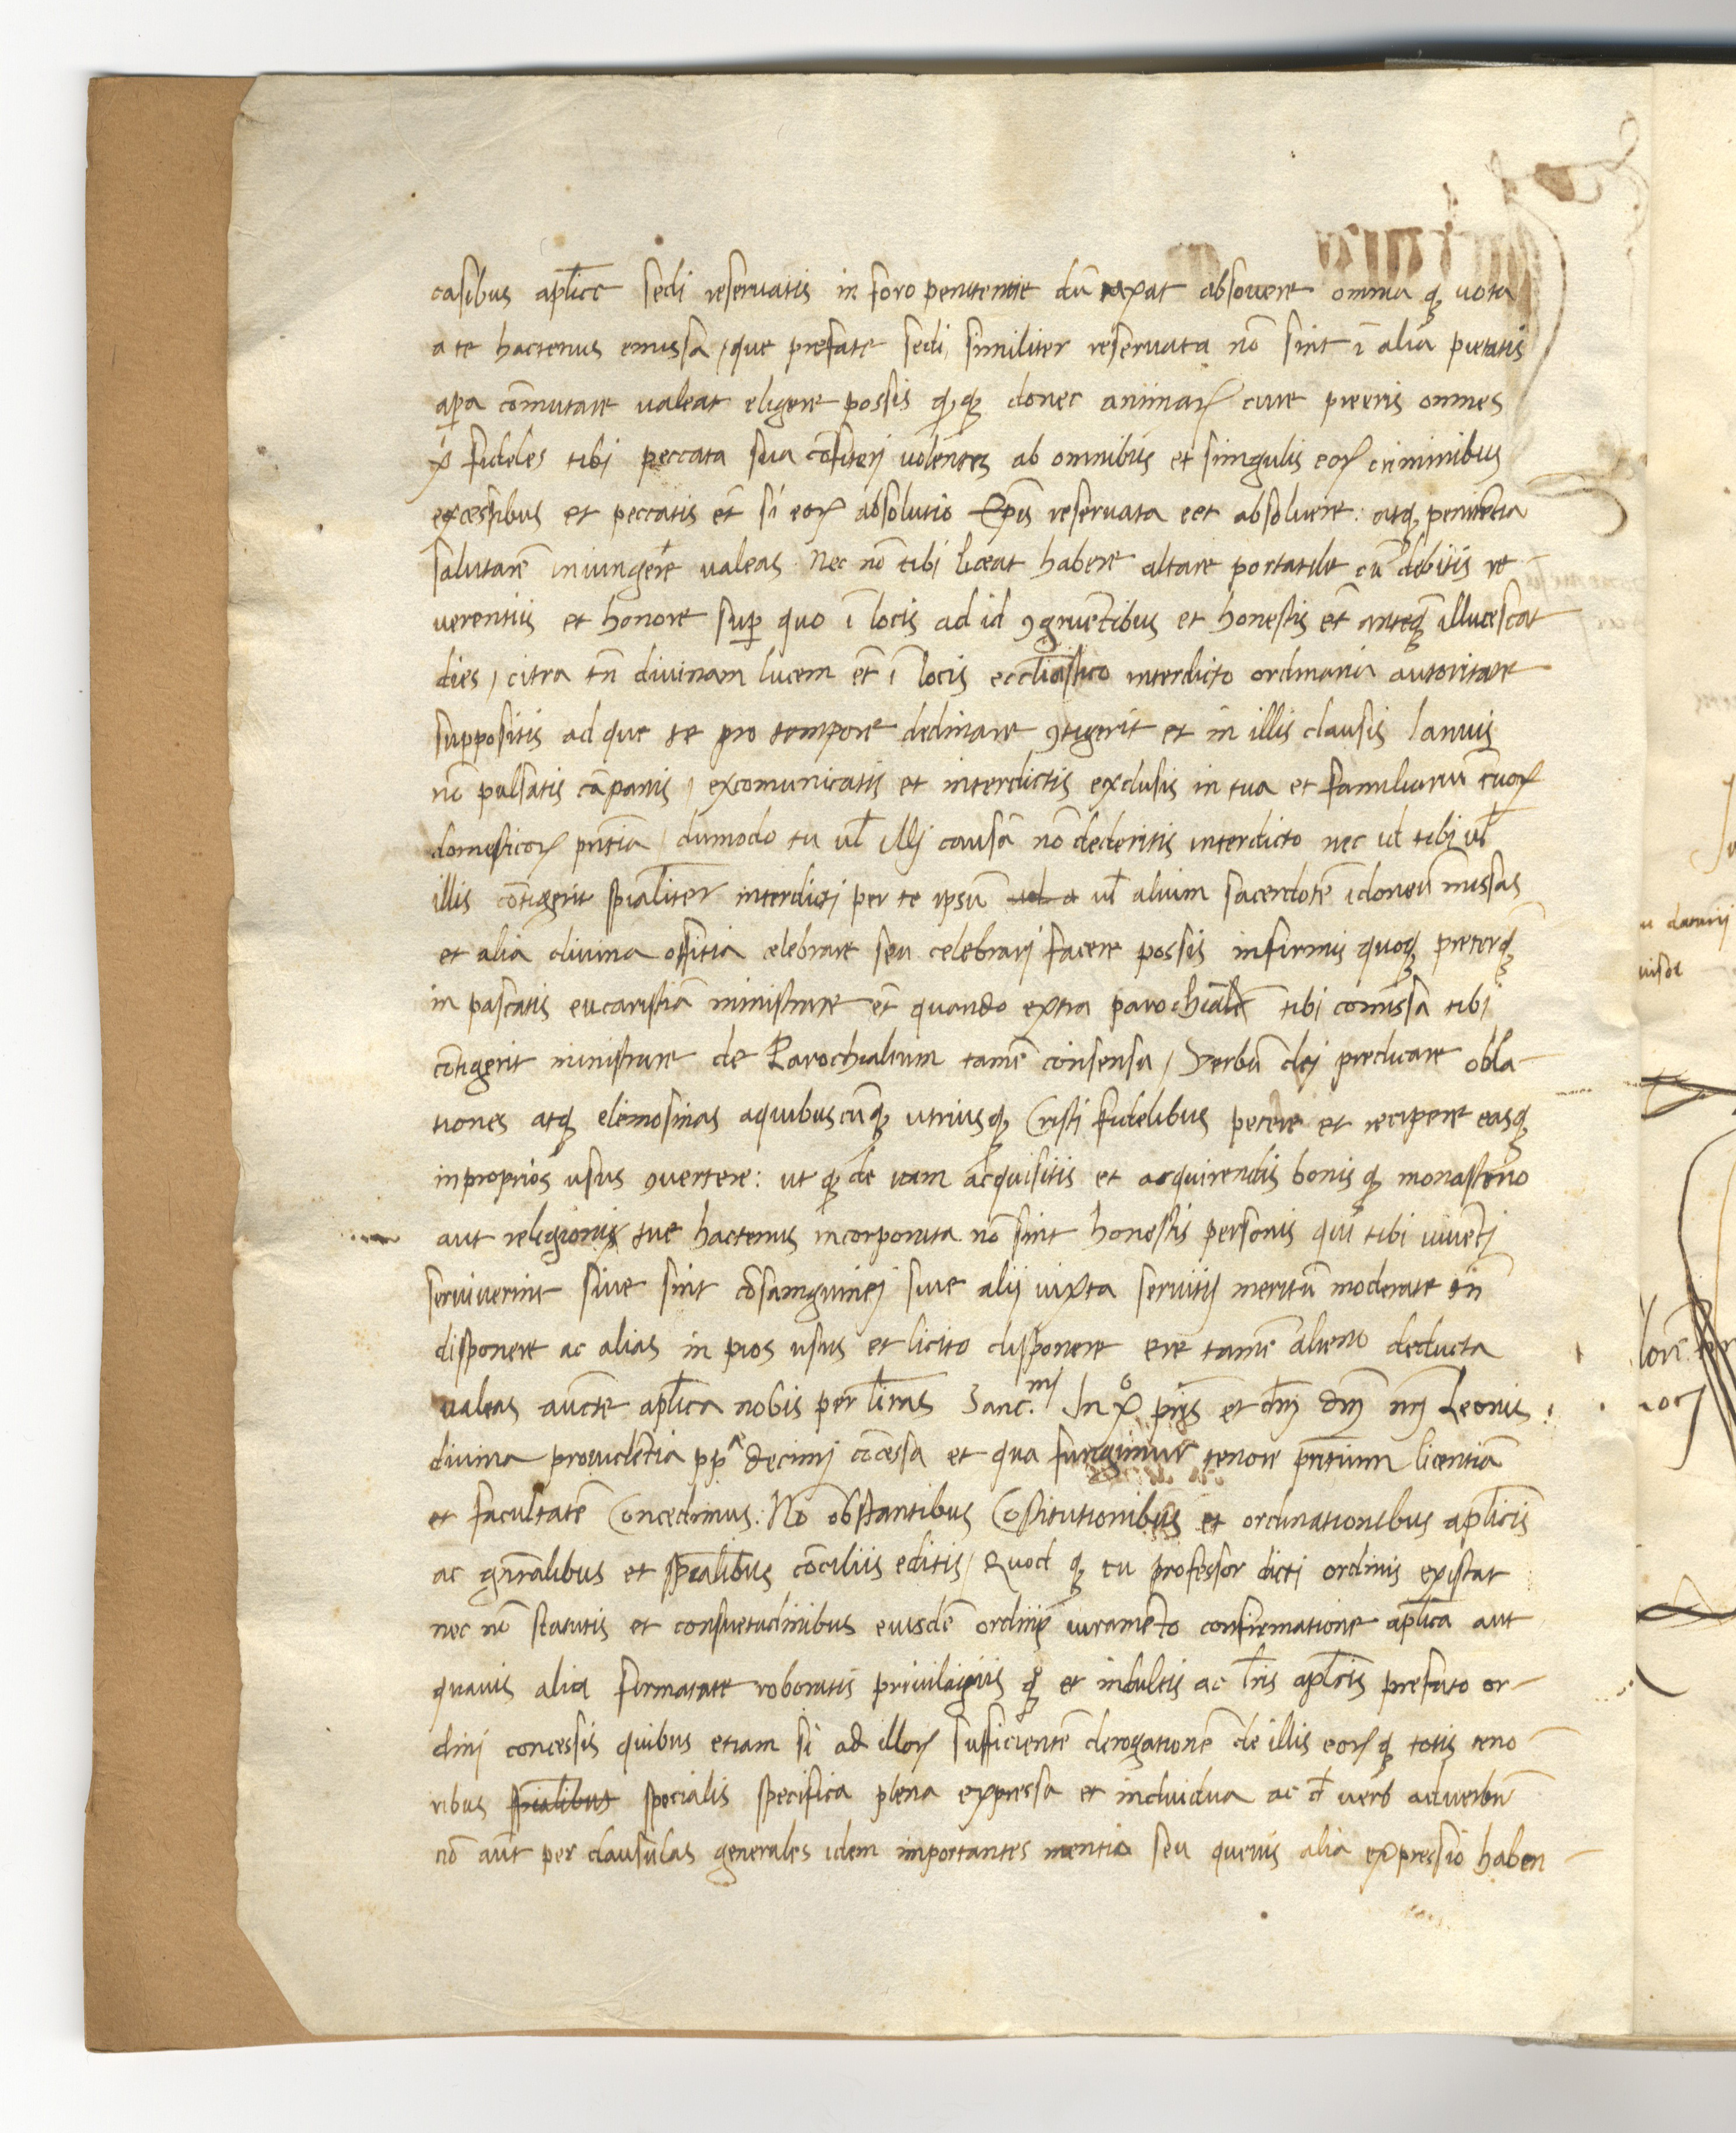 casibus apl̄ice sedi reseruatis in foro penitentie dū taxat absoluere omnia qȝ uota
a te hactenus emissa, que prefate sedi similiter reseruata nō sint ī alia pietatis
oꝑa cōmutare ualeat eligere possis qȝqȝ donec animaꝝ cure preeris omnes
xp̄i fideles tibi peccata sua cōfiteri uolentes ab omnibus et singulis eoꝝ criminibus
excessibus et peccatis et̄ si eoꝝ absolutio Ep̄is reseruata eēt absoluere: atqȝ penitētia
salutarē iniungere ualeas. Nec nō tibi liceat habere altare portatile cū debitis re-
uerentiis et honore suꝑ quo ī locis ad id ꝯgruētibus et honestis et̄ anteqȝ illucescat
dies, citra tn̄ diurnam lucem et̄ ī locis eccl̄iastico interdicto ordinaria autoritate
suppositis ad que te pro tempore declinare ꝯtigerit et in illis clausis Ianuis
nō pulsatis cāpanis, excomunicatis et interdictis exclusis in tua et familiarium tuoꝝ
domesticoꝝ pn̄tia, dumodo tu ul̄ illi causā nō dederitis interdicto nec id tibi ul̄
illis cōtigerit spialiter interdici per te ipsū ul̄ alium sacerdotē idoneū missas
et alia diuina offitia celebrare seu celebrari facere possis infirmis quoqȝ preterqȝ
in pascatis eucaristiā ministrare et̄ quando extra parochialē tibi comissa tibi
cōtigerit ministrare de Parochialium tamē consensu, Verbū dei predicare obla-
tiones atqȝ elemosinas aquibuscūqȝ utriusqȝ Cristi fidelibus petere et recipere easqȝ
inproprios usus ꝯuertere: ut qȝ de iam acquisitis et acquirendis bonis qȝ monasterio
aut religionis tue hactenus incorporata nō sint honestis personis qui tibi uiuenti
seruiuerint siue sint cōsanguinei siue alij iuxta seruitij meritū moderate tn̄
disponere ac alias in pios usus et licito disponere ere tamē alieno deducta
ualeas aucte apl̄ica nobis per lr̄as Sanc.mj In xo pr̄is et dn̄j dn̄j nrj Leonis
diuina prouidētia pp̄e decimj cōcessa et qua fungimur tenore pn̄tium licentiā
et facultatē Concedimus: Nō obstantibus Cōstitutionibus et ordinationibus apl̄icis
ac gn̄ralibus et sp̄ialibus cōciliis editis, Quod qȝ tu professor dicti ordinis existat
nec nō statutis et consuetudinibus eiusdē ordinis iuramēto confirmatione apl̄ica aut
quauis alia firmatate roboratis priuilegiis qȝ et indultis ac lr̄is apl̄icis prefato or-
dini concessis quibus etiam si ad illoꝝ sufficientē derogationē de illis eorꝝ qȝ totis teno-
ribus spialibus specialis specifica plena expressa et indiuidua ac d̄ uerb aduerbū
nō aūt per clausulas generales idem importantes mentio seu queuis alia expressio haben-